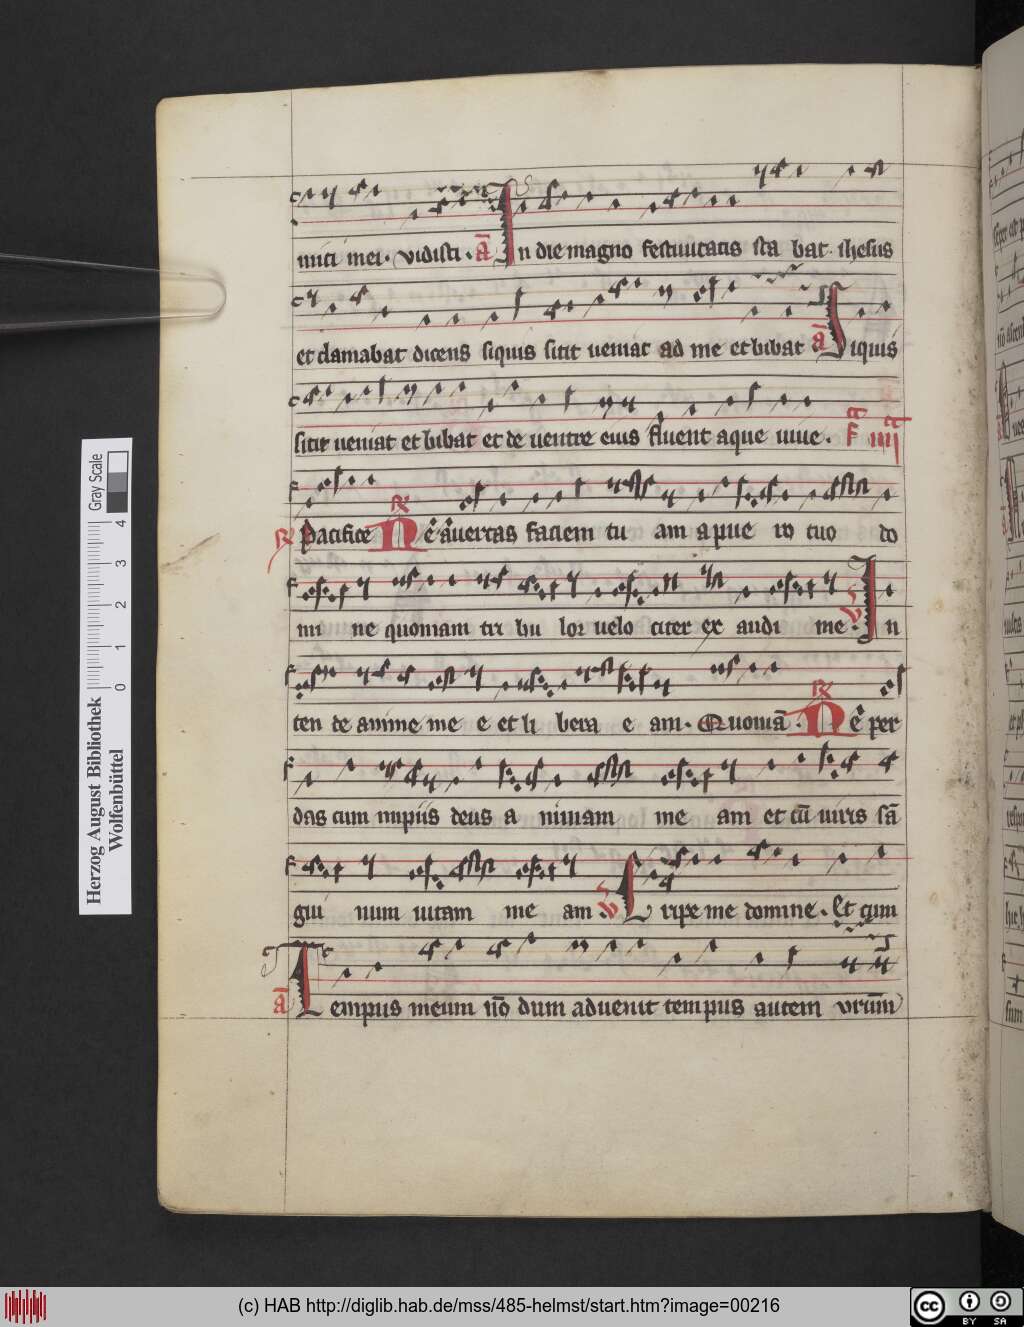 mici mei. vidisti. a In die magno festiuitatis sta bat ihesus
et clamabat dicens siquis sitit ueniat ad me et bibat a Siquis
sitit ueniat et bibat et de uentre eius fluent aque uiue. F iiii
R Pacifice R Ne auertas faciem tu am a pue ro tuo do
mi ne quoniam tri bu lor uelo citer ex audi me. V In
ten de anime me e et li bera e am. Quoniā. R Ne per
das cum impiis deus a nimam me am et cū uiris sā
gui num uitam me am. V Eripe me domine. Et cum
a Tempus meum nō dum aduenit tempus autem vrūm
Herzog August Bibliothek
Wolfenbüttel
0 1 2 3 4
Gray Scale
(c) HAB http://diglib.hab.de/mss/485-helmst/start.htm?image=00216
cc BY SA